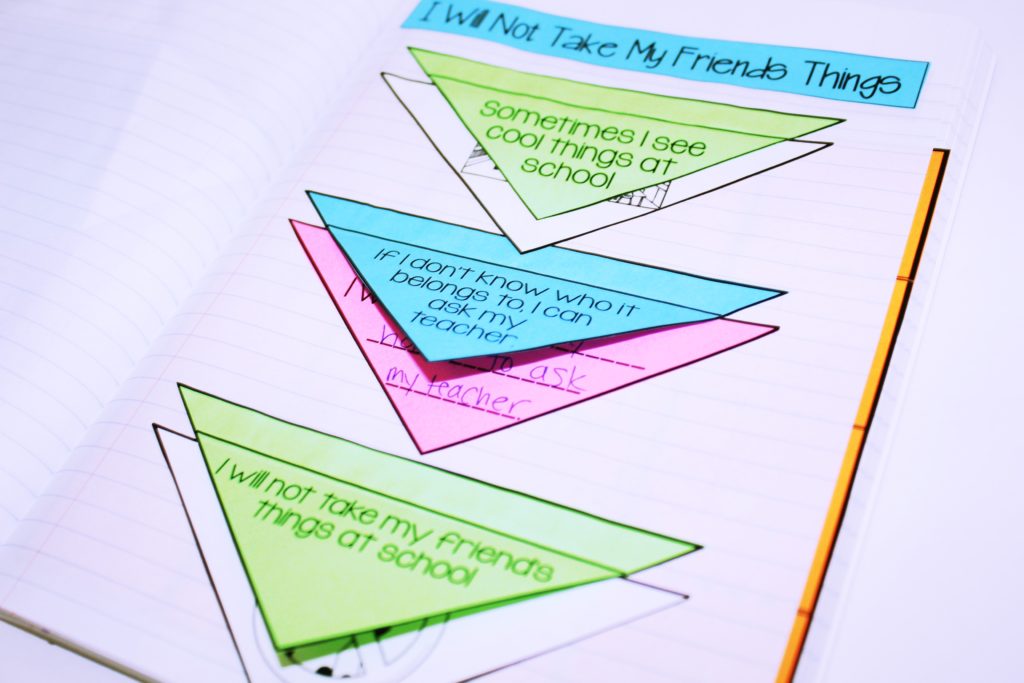 I Will Not Take My Friends Things
Sometimes I see
cool things at
school
If I don't know who it
belongs to, I can
ask my
teacher.
to ask
my teacher.
I will not take my friend's
things at school